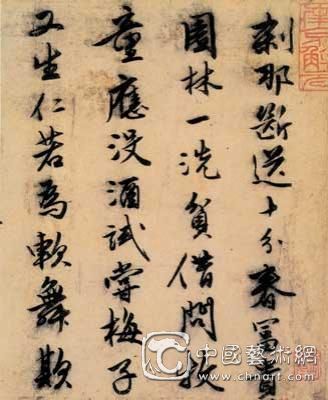 刹那斷送十分春冨貴
園林一洗貧借問牧
童應没酒試嘗梅子
又生仁若為軟舞欺
中國藝術網